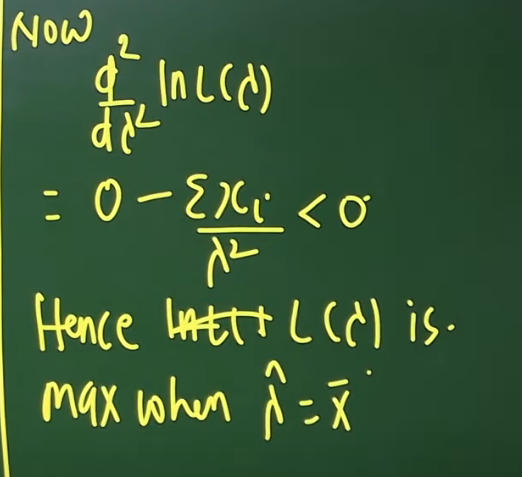 Now
d²/dλ² ln L(λ)
= 0 - Σxᵢ/λ² < 0
Hence L(λ) is.
max when λ̂ = x̄